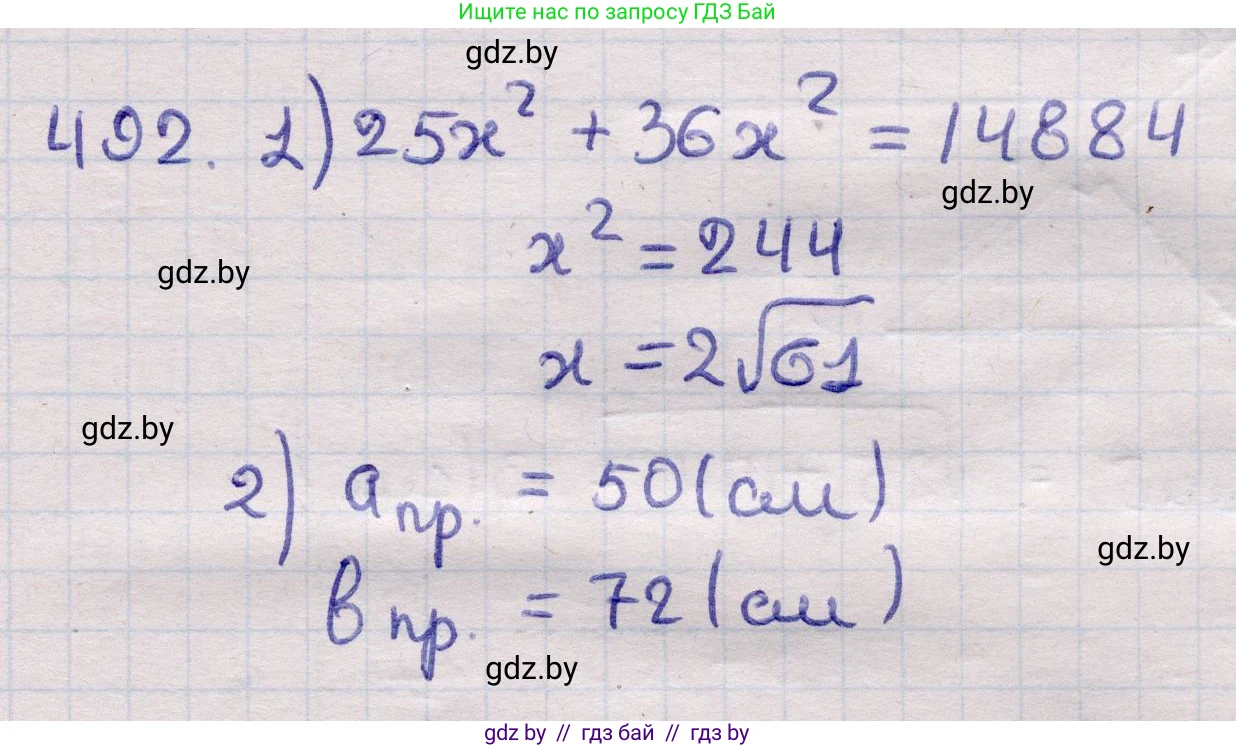 Ищите нас по запросу ГДЗ Бай
gdz.by
492. 1) 25x² + 36x² = 14884
gdz.by
x² = 244
gdz.by
x = 2√61
gdz.by
2) a пр. = 50 (см)
gdz.by
в пр. = 72 (см)
gdz.by
gdz by // гдз бай // gdz by